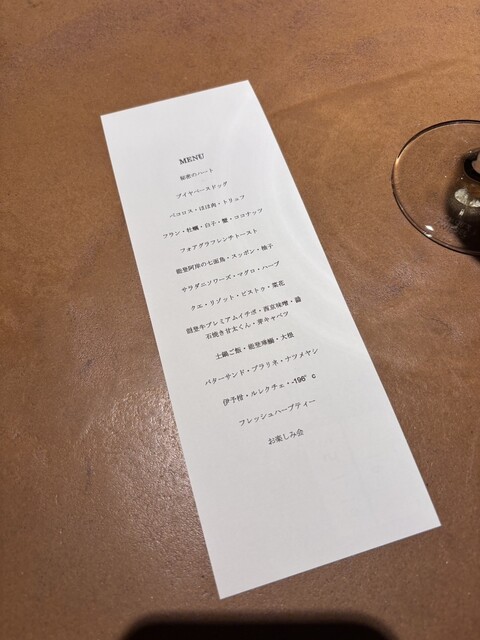 MENU
秘密のハート
ブイヤベースドッグ
ペコロス・ほほ肉・トリュフ
フラン・牡蠣・白子・蟹・ココナッツ
フォアグラフレンチトースト
能登阿岸の七面鳥・スッポン・柚子
サラダニソワーズ・マグロ・ハーブ
クエ・リゾット・ピストゥ・菜花
能登牛プレミアムイチボ・西京味噌・
石焼き甘太くん・芽キャベツ
土鍋ご飯・能登・大根
バターサンド・プラリネ・ナツメヤシ
伊予柑・ルレクチェ・-196°c
フレッシュハーブティー
お楽しみ会